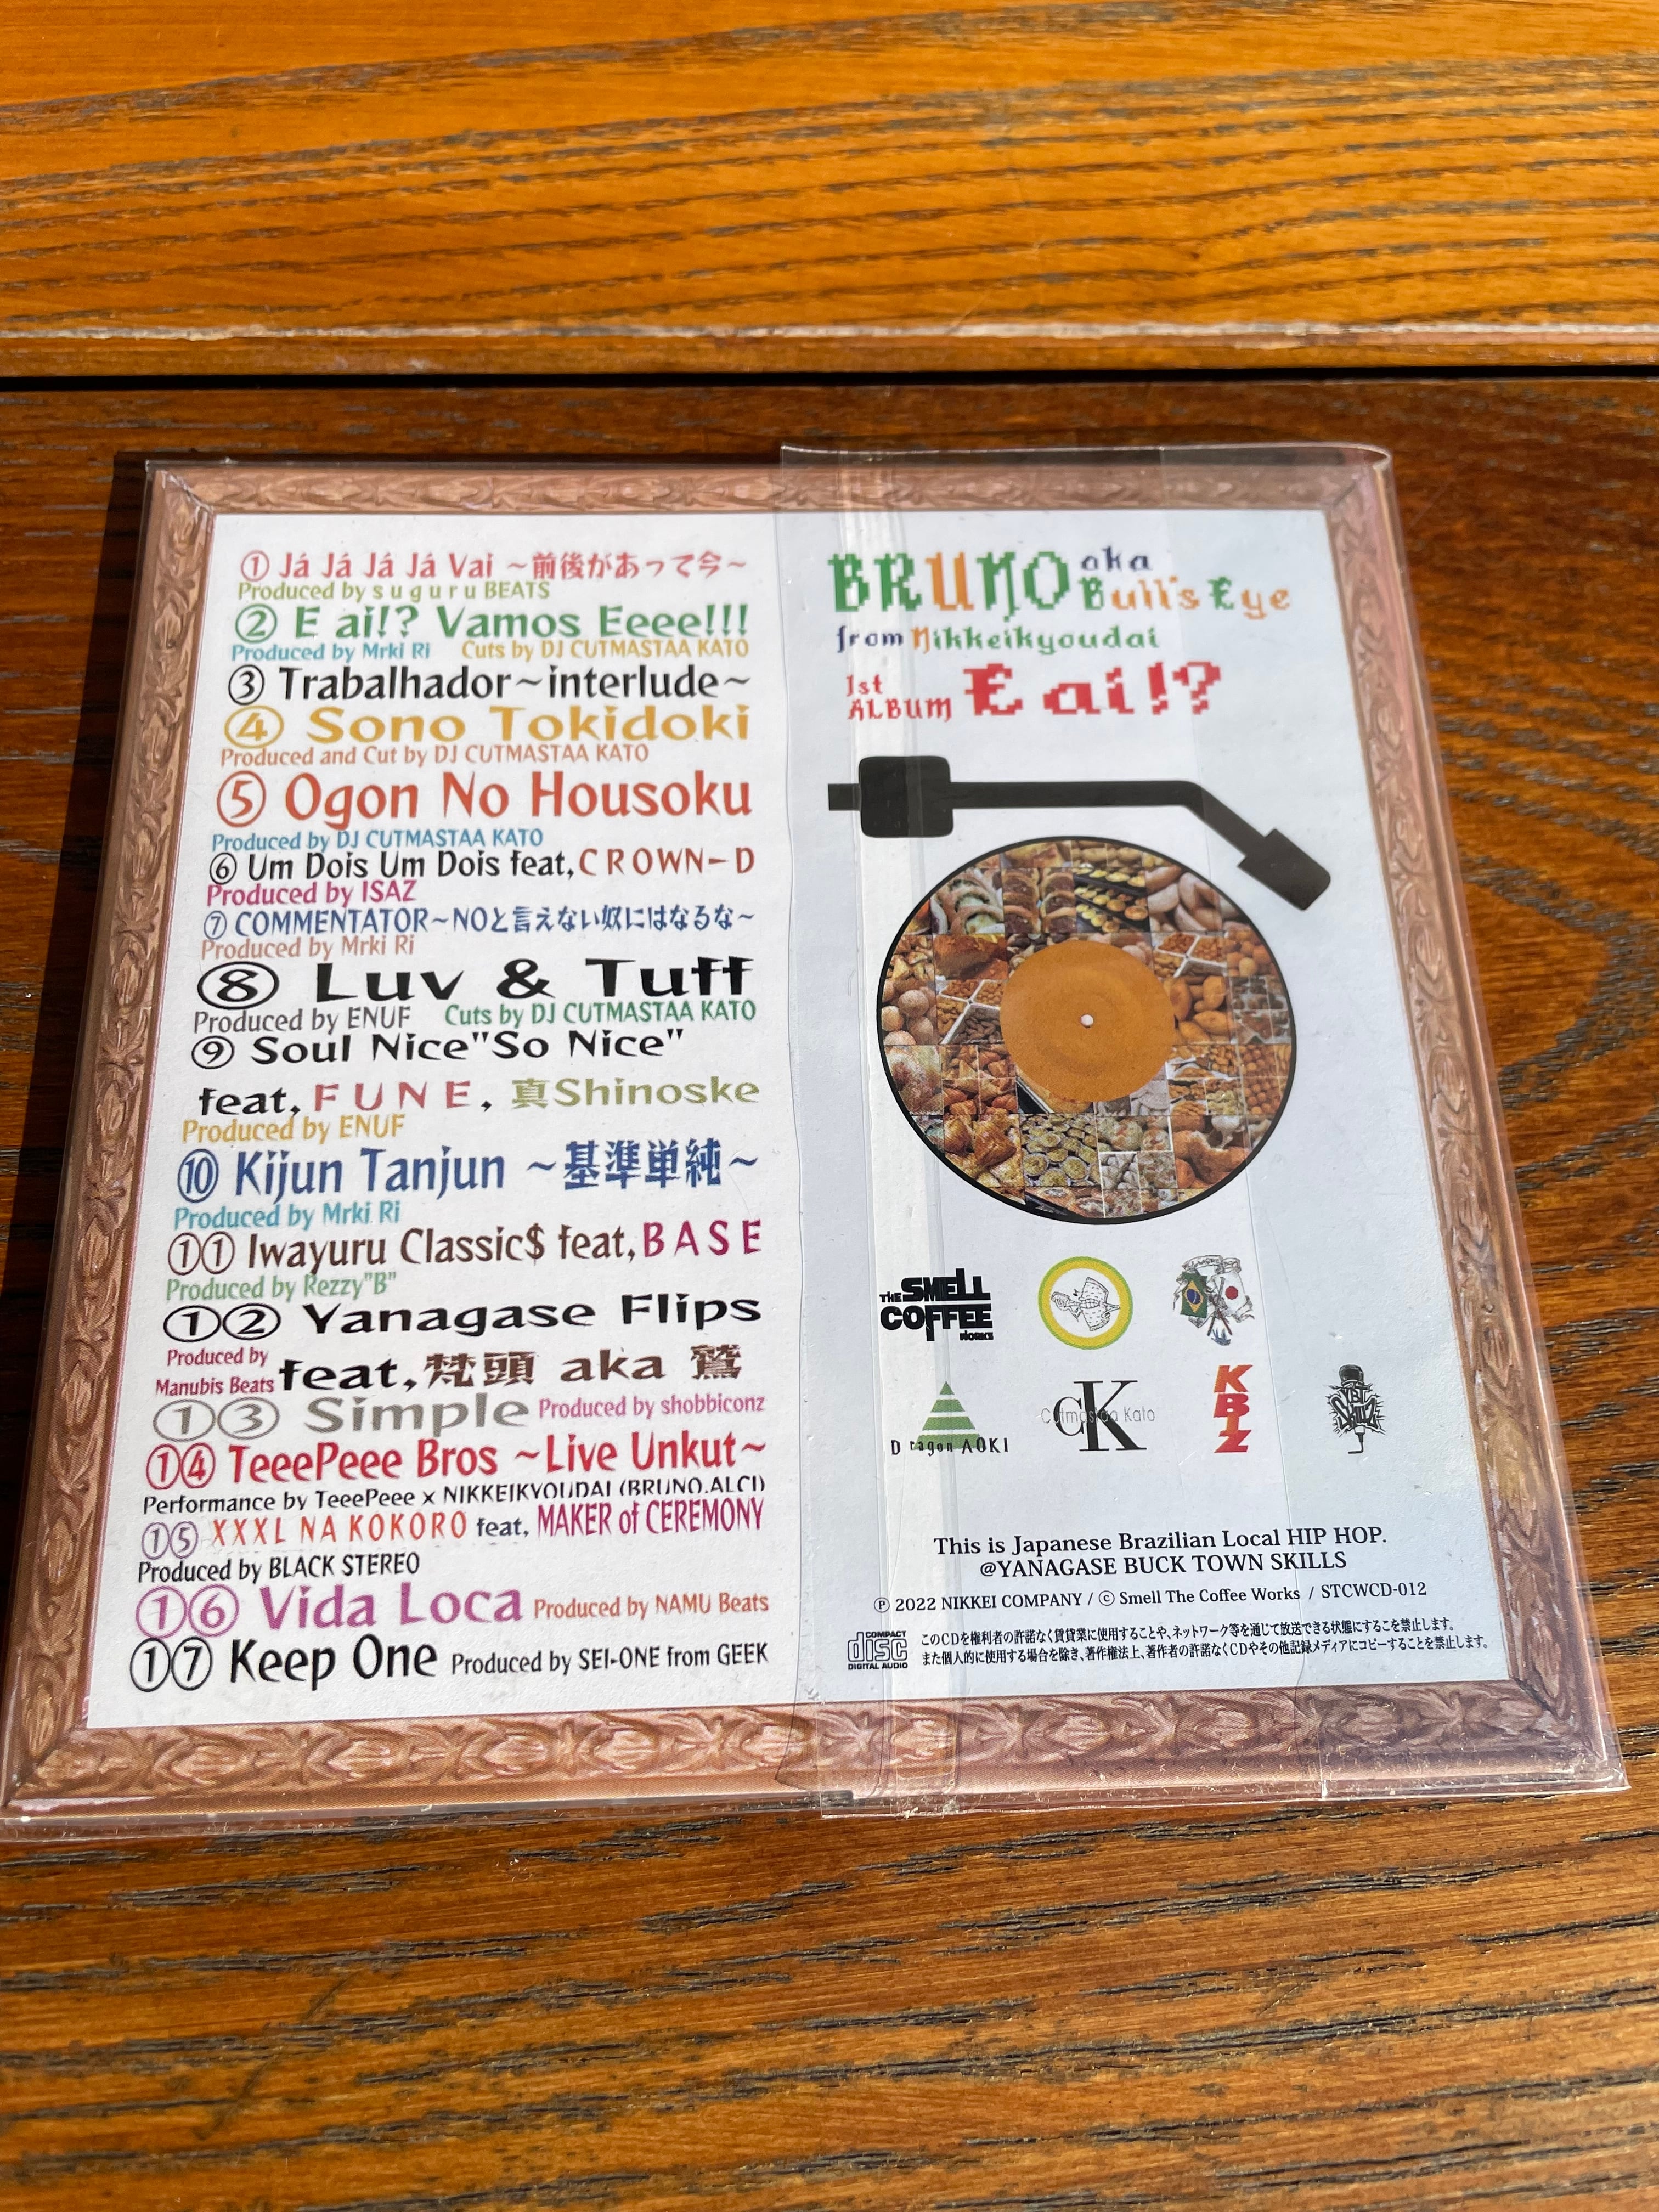 ① Já Já Já Já Vai ～前後があって今～
Produced by s u g u r u BEATS
② E ai!? Vamos Eeee!!!
Produced by Mrki Ri Cuts by DJ CUTMASTAA KATO
③ Trabalhador～interlude～
④ Sono Tokidoki
Produced and Cut by DJ CUTMASTAA KATO
⑤ Ogon No Housoku
Produced by DJ CUTMASTAA KATO
⑥ Um Dois Um Dois feat,CROWN-D
Produced by ISAZ
⑦ COMMENTATOR～NOと言えない奴にはなるな～
Produced by Mrki Ri
⑧ Luv & Tuff
Produced by ENUF Cuts by DJ CUTMASTAA KATO
⑨ Soul Nice"So Nice"
feat, FUNE, 真Shinoske
Produced by ENUF
⑩ Kijun Tanjun ～基準単純～
Produced by Mrki Ri
①① Iwayuru Classic$ feat,BASE
Produced by Rezzy"B"
①② Yanagase Flips
Produced by
Manubis Beats feat,梵頭 aka 鷲
①③ Simple Produced by shobbiconz
①④ TeeePeee Bros ～Live Unkut～
Performance by TeeePeee x NIKKEIKYOUDAI (BRUNO.ALCI)
①⑤ XXXL NA KOKORO feat, MAKER of CEREMONY
Produced by BLACK STEREO
①⑥ Vida Loca Produced by NAMU Beats
①⑦ Keep One Produced by SEI-ONE from GEEK
BRUNO aka
Bull's Eye
from Nikkeikyoudai
1st
ALBUM E ai!?
THE SMELL
COFFEE
WORKS
Dragon AOKI
cK
Cutmastaa Kato
KBTZ
YBT
SKILLZ
This is Japanese Brazilian Local HIP HOP.
@YANAGASE BUCK TOWN SKILLS
Ⓟ 2022 NIKKEI COMPANY / ⓒ Smell The Coffee Works / STCWCD-012
COMPACT
disc
DIGITAL AUDIO
このCDを権利者の許諾なく賃貸業に使用することや、ネットワーク等を通じて放送できる状態にするこを禁止します。
また個人的に使用する場合を除き、著作権法上、著作者の許諾なくCDやその他記録メディアにコピーすることを禁止します。